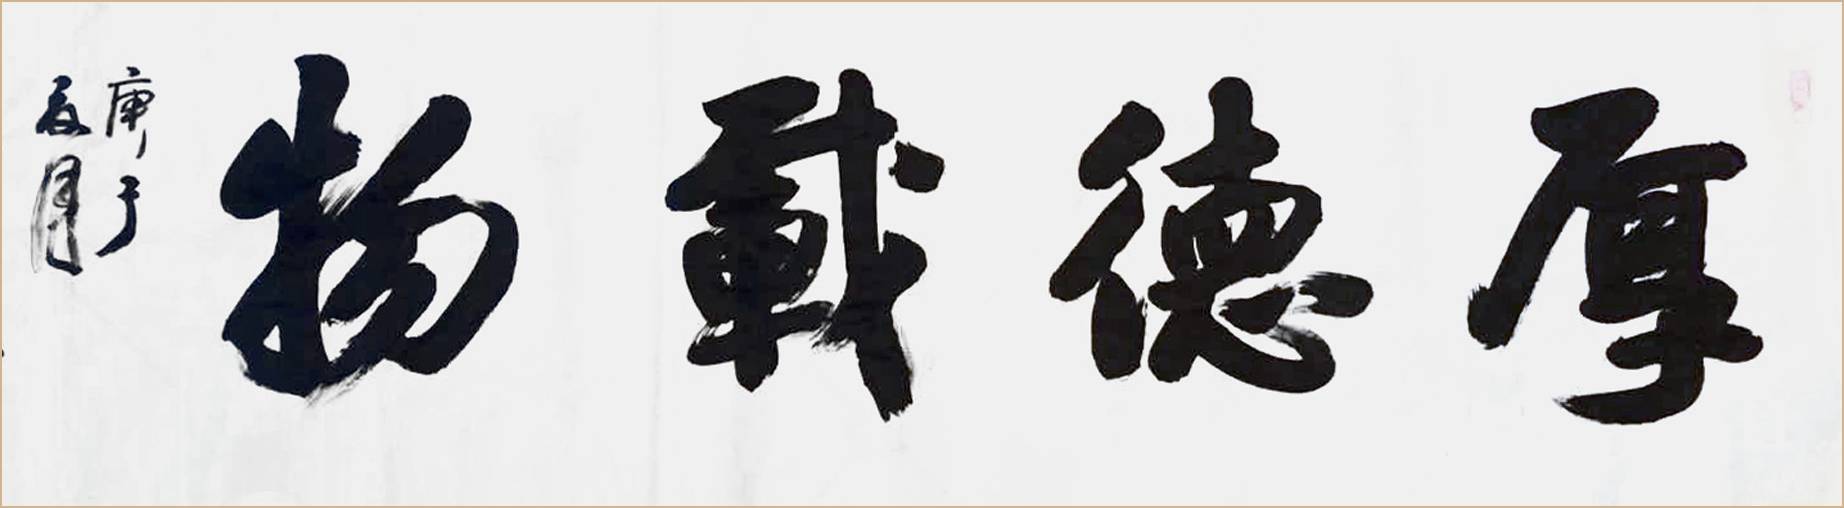 厚德載物
庚子
夏月